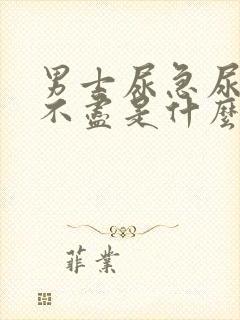 男士尿急尿
不盡是什麼
菲業